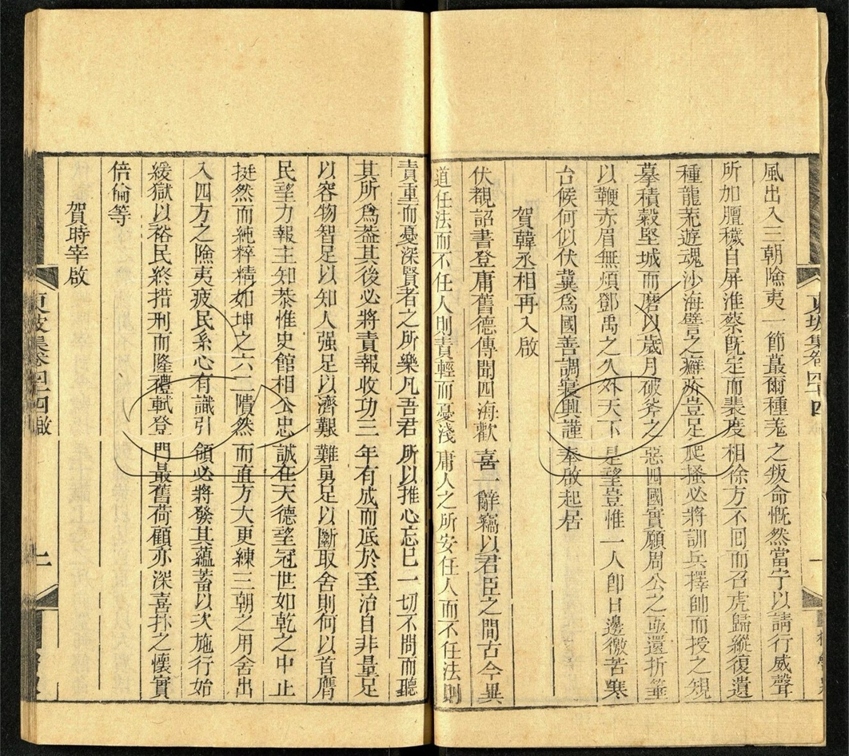 東坡集卷四十四
一
風出入三朝險夷一節蕞爾種羌之叛命慨然當宁以請行威聲
所加膻穢自屏淮蔡既定而裴度相徐方不囘而召虎歸縱復遺
種龍荒遊魂沙海譬之癬疥豈足爬搔必將訓兵擇帥而授之規
摹積穀堅城而磨以歲月破斧之惡四國實願周公之亟還折箠
以鞭赤眉無煩鄧禹之久外天下是望豈惟一人卽日邊徼苦寒
台候何似伏冀爲國善調寢興謹奉啟起居
賀韓丞相再入啟
伏覩詔書登庸舊德傳聞四海歡喜一辭竊以君臣之間古今異
道任法而不任人則責輕而憂淺庸人之所安任人而不任法則
責重而憂深賢者之所樂凡吾君所以推心忘已一切不問而聽
其所爲蓋其後必將責報收功三年有成而底於至治自非量足
以容物智足以知人强足以濟艱難勇足以斷取舍則何以首膺
民望力報主知恭惟史館相公忠誠在天德望冠世如乾之中止
挺然而純粹精如坤之六二隤然而直方大更練三朝之用舍出
入四方之險夷疲民系心有識引領必將發其蘊蓄以次施行始
緩獄以裕民終措刑而隆禮軾登門最舊荷顧亦深喜抃之懷實
倍倫等
賀時宰啟
東坡集卷四十四啟
二